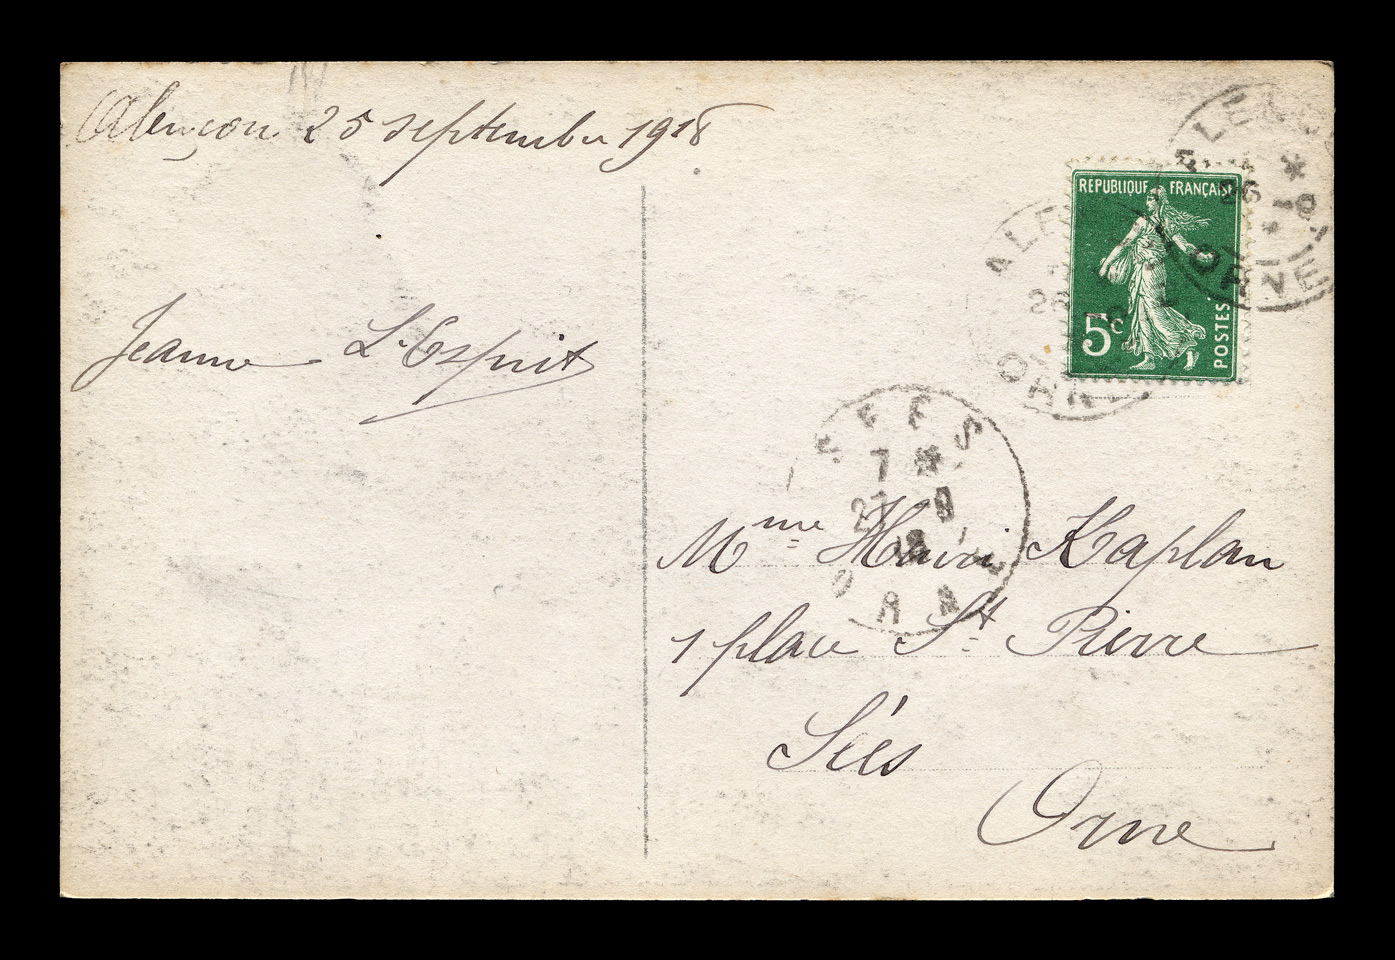 Alençon 25 septembre 1918
Jeanne L'Esprit
REPUBLIQUE FRANÇAISE
5c
POSTES
ALENÇON
26 -9
ORNE
ALE
26
ORN
SEES
7 *
27 9
18
ORNE
Mme Henri Kaplan
1 place St Pierre
Sées
Orne